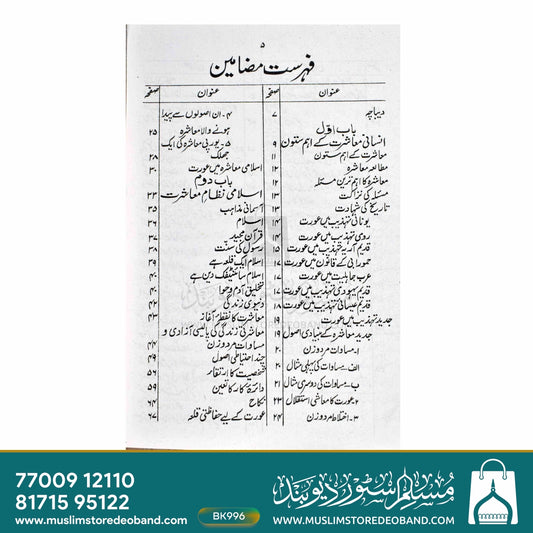 ۵
فہرست مضامین
عنوان صفحہ
دیباچہ ۷
باب اوّل
انسانی معاشرت کے اہم ستون ۹
معاشرت کے اہم ستون ۱۱
مطالعہ معاشرہ ۱۲
معاشرہ کا اہم ترین مسئلہ ۱۲
مسئلہ کی نزاکت ۱۳
تاریخ کی شہادت ۱۳
یونانی تہذیب میں عورت ۱۴
رومی تہذیب میں عورت ۱۴
قدیم آریہ تہذیب میں عورت ۱۵
حمورابی کے قانون میں عورت ۱۷
عرب جاہلیت میں عورت ۱۷
قدیم یہودی تہذیب میں عورت ۱۷
قدیم عیسائی تہذیب میں عورت ۱۸
جدید تہذیب میں عورت ۱۹
جدید معاشرہ کے بنیادی اصول ۱۹
۱۔ مساوات مرد و زن ۲۰
الف۔ مساوات کی پہلی مثال ۲۰
ب۔ مساوات کی دوسری مثال ۲۱
۲۔ عورت کا معاشی استقلال ۲۳
۳۔ اختلاط مرد و زن ۲۴
عنوان صفحہ
۴۔ ان اصولوں سے پیدا
ہونے والا معاشرہ ۲۵
۵۔ یورپی معاشرہ کی ایک
جھلک ۲۸
اسلامی معاشرہ میں عورت ۳۰
باب دوم
اسلامی نظامِ معاشرت ۳۳
آسمانی مذاہب ۳۵
اسلام ۳۶
قرآن مجید ۳۷
رسول کی سنت ۳۸
اسلام ایک قلعہ ہے ۳۹
اسلام سائنٹیفک دین ہے ۴۰
تخلیق آدم و حوا ۴۰
دنیوی زندگی ۴۲
معاشرت کا نقطۂ آغاز ۴۳
معاشرتی زندگی کی پالیسی آزادی و
مساوات مرد و زن ۴۴
چند احتیاطی اصول ۴۹
شخصیت کا ارتقاء ۵۶
دائرہ کار کا تعین ۵۹
نکاح ۶۴
عورت کے لیے حفاظتی قلعہ ۶۷
77009 12110
81715 95122
www.muslimstoredeoband.com
BK996
مسلم سٹور دیوبند
WWW.MUSLIMSTOREDEOBAND.COM